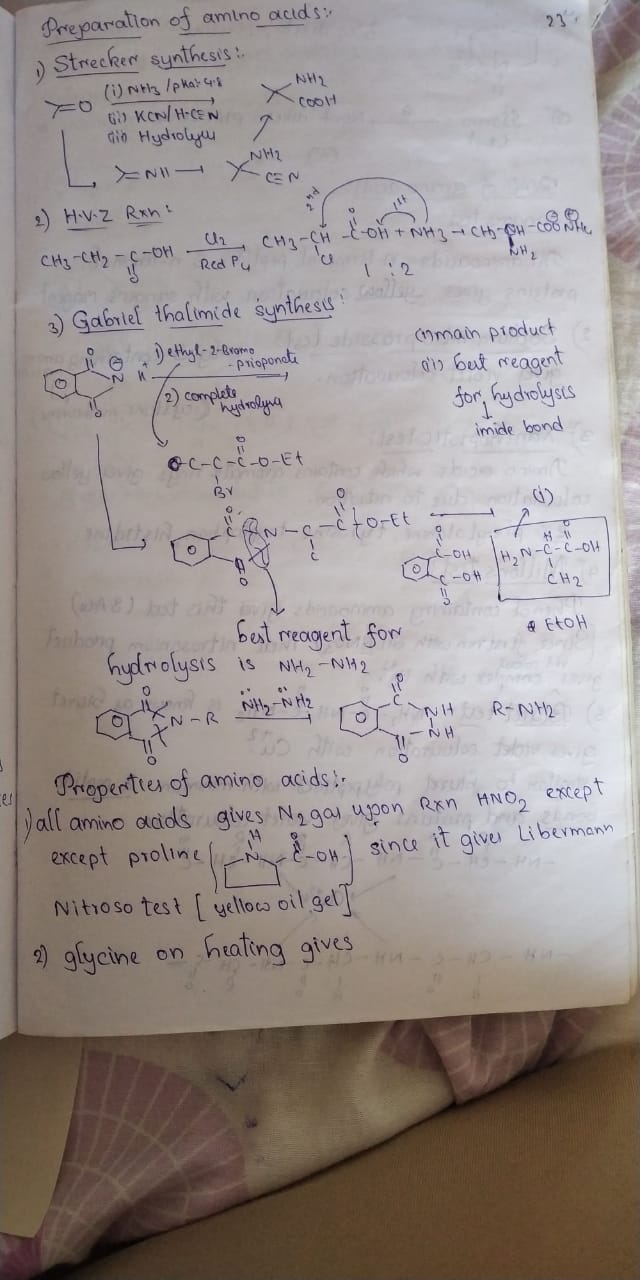 Preparation of amino acids:-
23
1) Strecker synthesis:
(i) NH3 /pka: 4.8
(ii) KCN/H-C≡N
(iii) Hydrolysis
=O
NH2
COOH
=NH →
NH2
C≡N
2) H.V.Z Rxn:
2nd
1st
CH3-CH2-C-OH
O
Cl2
Red P4
CH3-CH-C-OH + NH3 → CH3-CH-COO NH4
O
Cl
NH2
1 : 2
3) Gabriel thalimide synthesis:
1) ethyl-2-Bromo
-propionate
2) complete
hydrolysis
O
N
H
O
(i) main product
(ii) best reagent
for hydrolysis
imide bond
C-C-C-O-Et
O
Br
O
C
N-C-C-O-Et
O
C
O
C-OH
O
C-OH
O
(i)
H2N-C-C-OH
H
O
CH2
EtOH
best reagent for
hydrolysis is NH2-NH2
O
N-R
O
NH2-NH2
O
C
NH
NH
O
R-NH2
Properties of amino acids:-
1) all amino acids gives N2 gas upon Rxn HNO2 except
except proline [
H
N
C-OH
O
] since it gives Libermann
Nitroso test [yellow oil gel]
2) glycine on heating gives